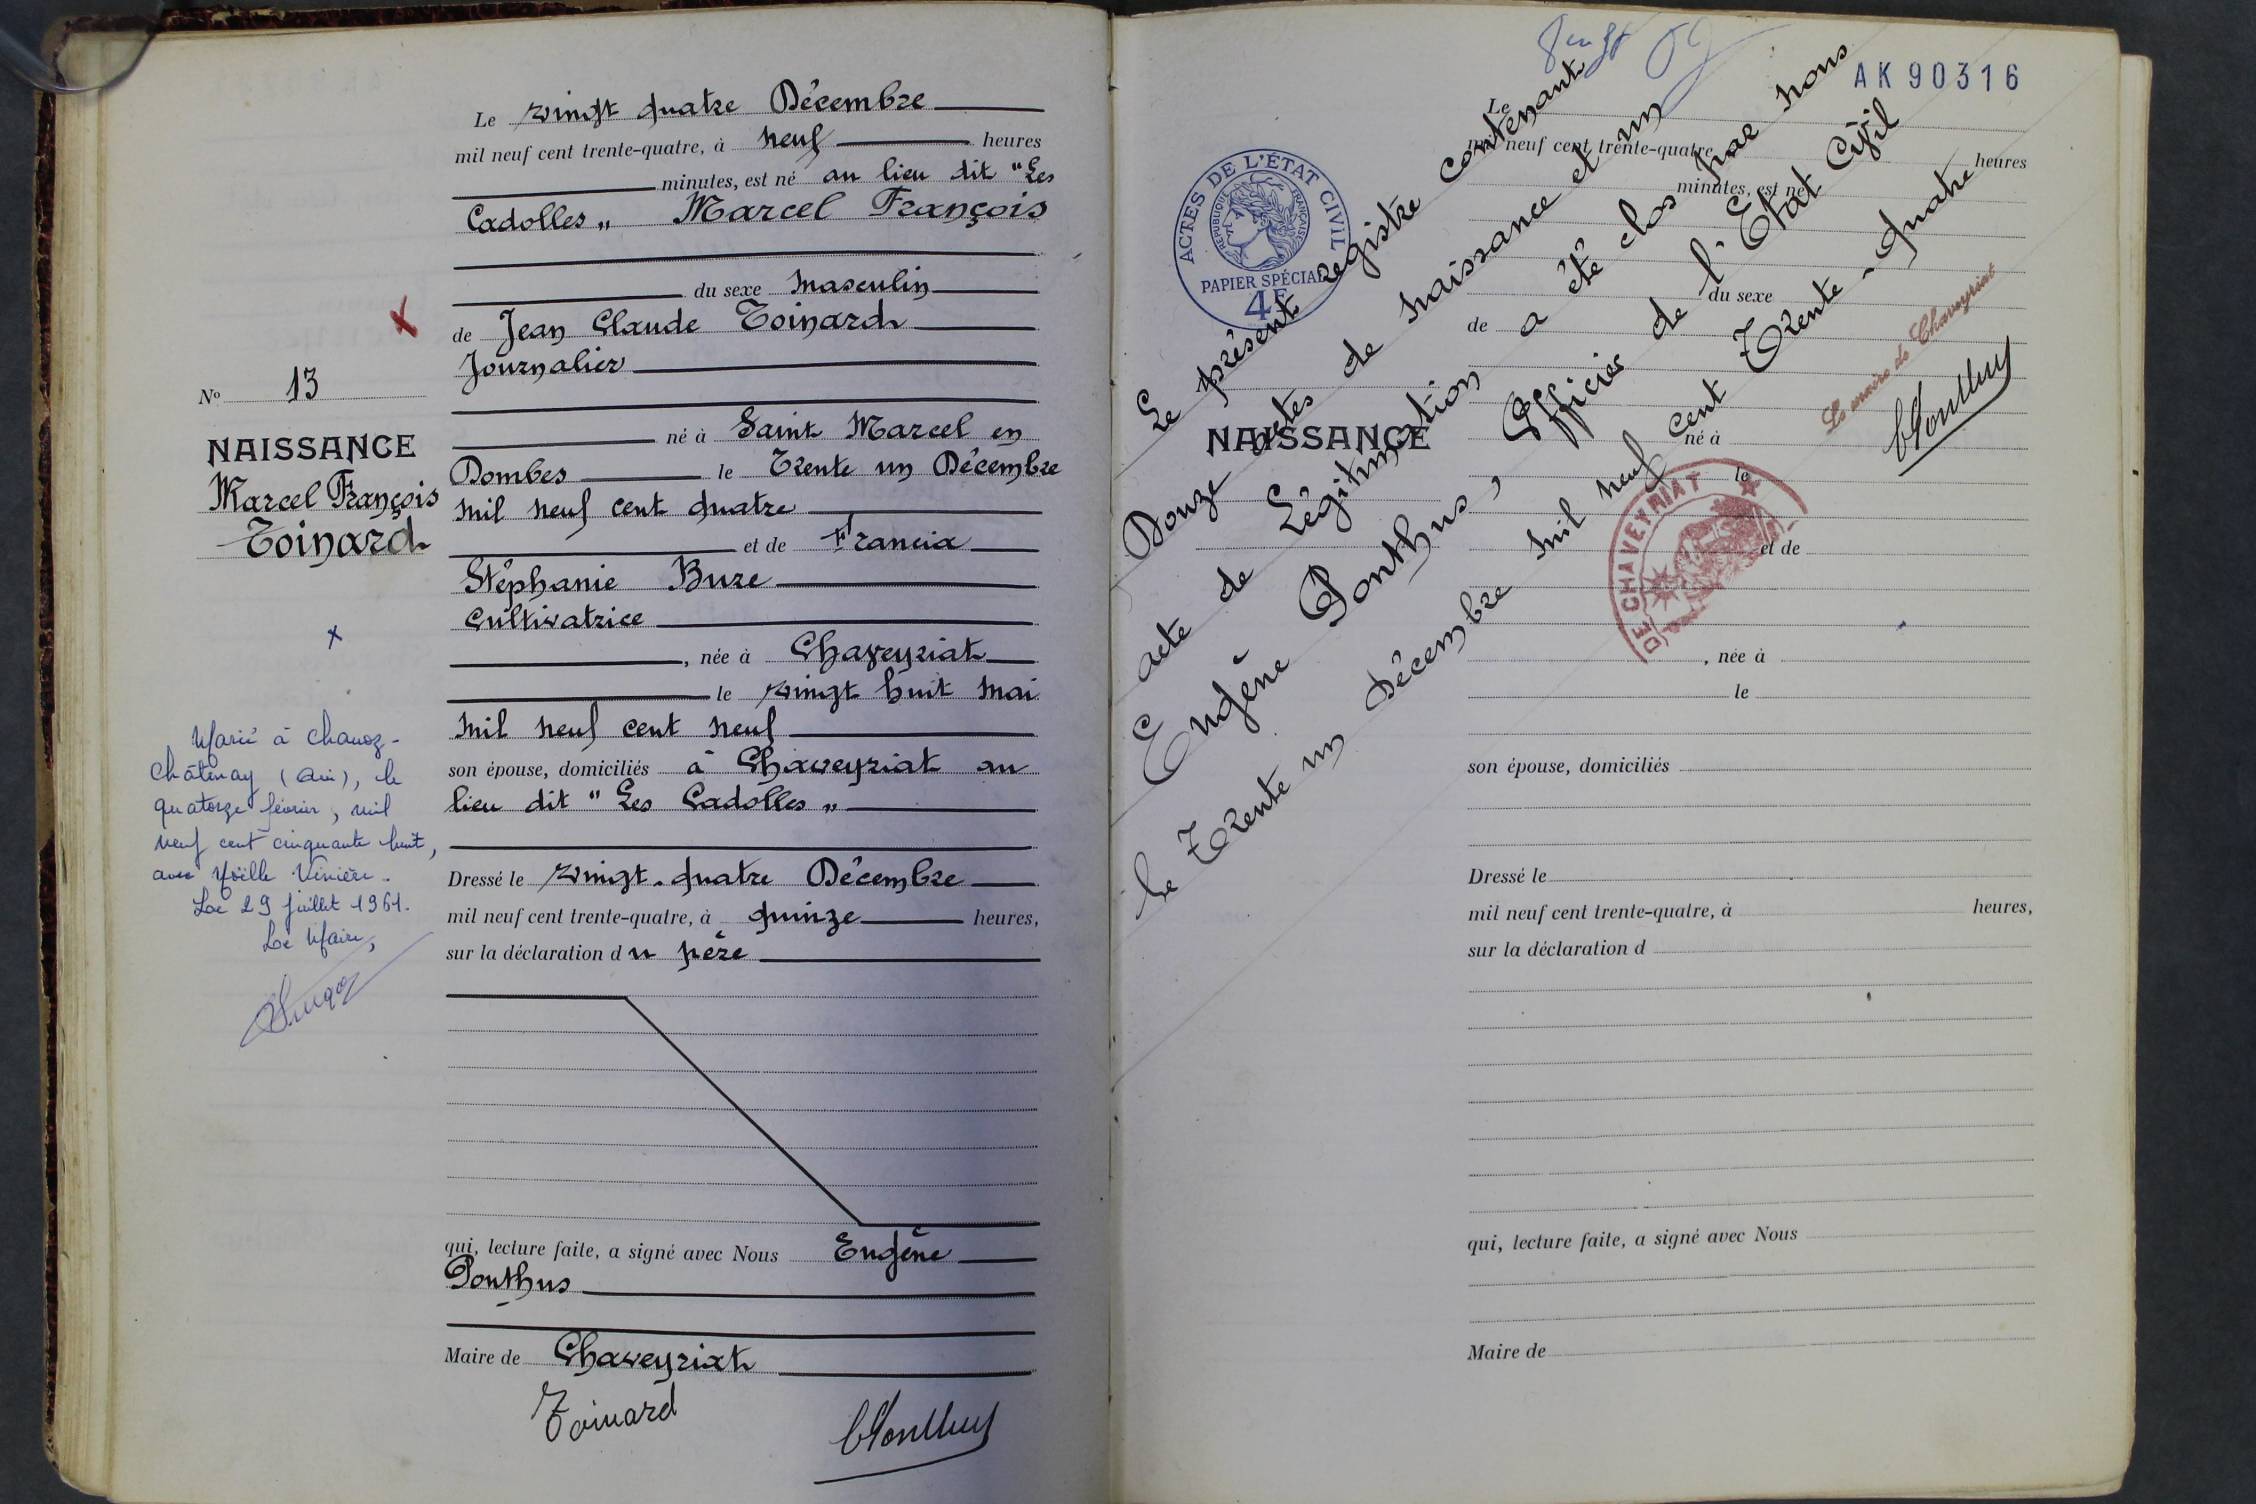 Le vingt quatre Décembre
mil neuf cent trente-quatre, à neuf heures
minutes, est né au lieu dit "Les
Cadolles" Marcel François
du sexe masculin
de Jean Claude Toinard
Journalier
né à Saint Marcel en
Dombes le Trente un Décembre
mil neuf cent quatre
et de Francia
Stéphanie Bure
Cultivatrice
, née à Chaveyriat
le vingt huit Mai
mil neuf cent neuf
son épouse, domiciliés à Chaveyriat au
lieu dit "Les Cadolles"
Dressé le vingt-quatre Décembre
mil neuf cent trente-quatre, à quinze heures,
sur la déclaration du père
qui, lecture faite, a signé avec Nous Eugène
Ponthus
Maire de Chaveyriat
Toinard
Ponthus
No 13
NAISSANCE
Marcel François
Toinard
x
Marié à Chanoz-
Châtenay (Ain), le
quatorze février, mil
neuf cent cinquante huit,
avec Noëlle Vivière.
Le 29 juillet 1961.
Le Maire,
AK90316
ACTES DE L'ÉTAT CIVIL
RÉPUBLIQUE FRANÇAISE
PAPIER SPÉCIAL
4F
NAISSANCE
Le
mil neuf cent trente-quatre
heures
minutes, est né
du sexe
de
né à
le
et de
, née à
le
son épouse, domiciliés
Dressé le
mil neuf cent trente-quatre, à heures,
sur la déclaration d
qui, lecture faite, a signé avec Nous
Maire de
Le présent registre contenant
Douze actes de naissance et un
acte de Légitimation a été clos par nous
Eugène Ponthus, Officier de l'Etat Civil
le Trente un Décembre mil neuf cent Trente-quatre
Le maire de Chaveyriat
Ponthus
DE CHAVEYRIAT